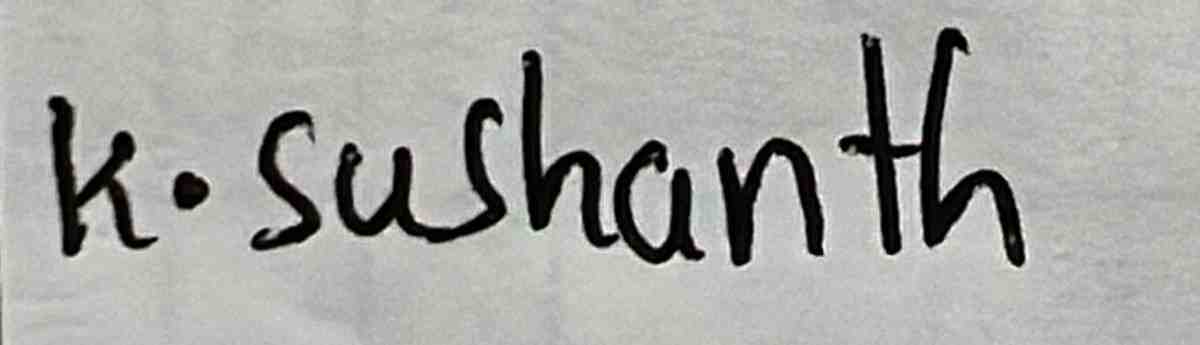 K. Sushanth